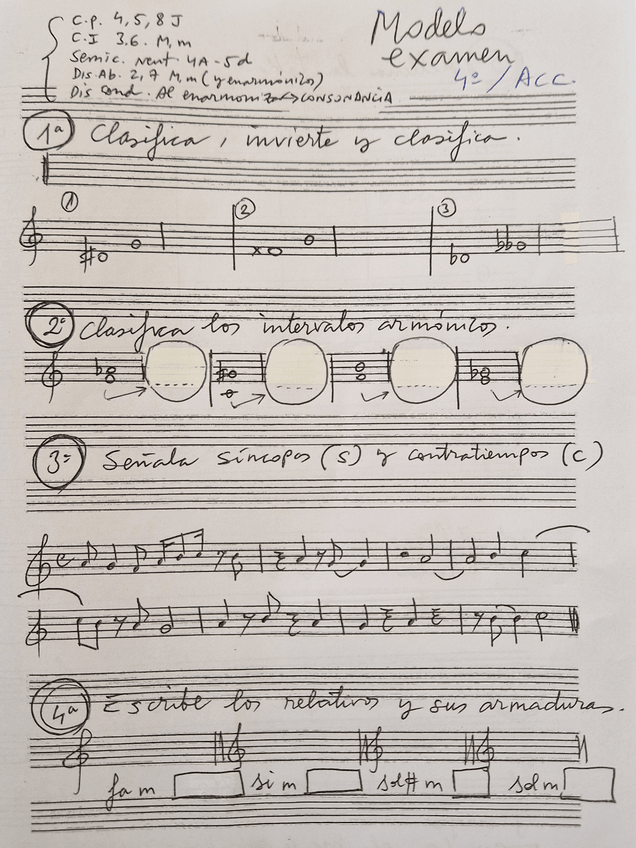 Modelo
examen
4º / ACC.
C.p. 4, 5, 8 J
C.I 3.6. M, m
Semic. Neut. 4A - 5d
Dis. Ab. 2, 7 M, m (y enarmónicos)
Dis Cond. Al enarmonizar → CONSONANCIA
1ª Clasifica, invierte y clasifica.
① ② ③
2ª Clasifica los intervalos armónicos.
3ª Señala síncopas (S) y contratiempos (C)
4ª Escribe los relativos y sus armaduras.
fa m si m sol# m sol m